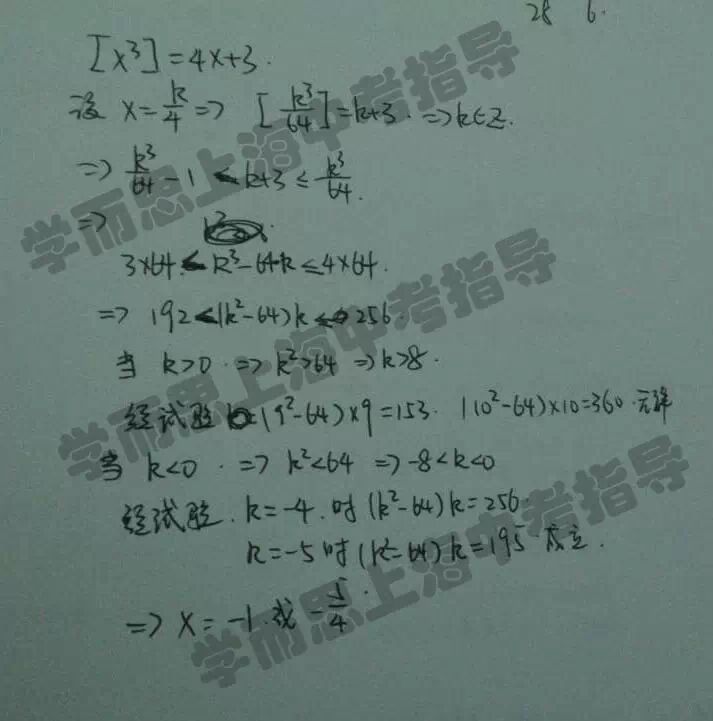 28 6.
[x³]=4x+3.
设 x=k/4 => [k³/64]=k+3. =>k∈Z.
=> k³/64 -1 < k+3 ≤ k³/64.
=>
3×64 < k³-64k ≤ 4×64.
=> 192<(k²-64)k≤256.
当 k>0 . => k²>64 => k>8.
经试验 (9²-64)×9=153. (10²-64)×10=360.无解
当 k<0 . => k²<64 => -8<k<0
经试验. k=-4.时(k²-64)k=256.
k=-5时(k²-64)k=195 成立.
=> x=-1.或 -5/4.
学而思上海中考指导
学而思上海中考指导
学而思上海中考指导